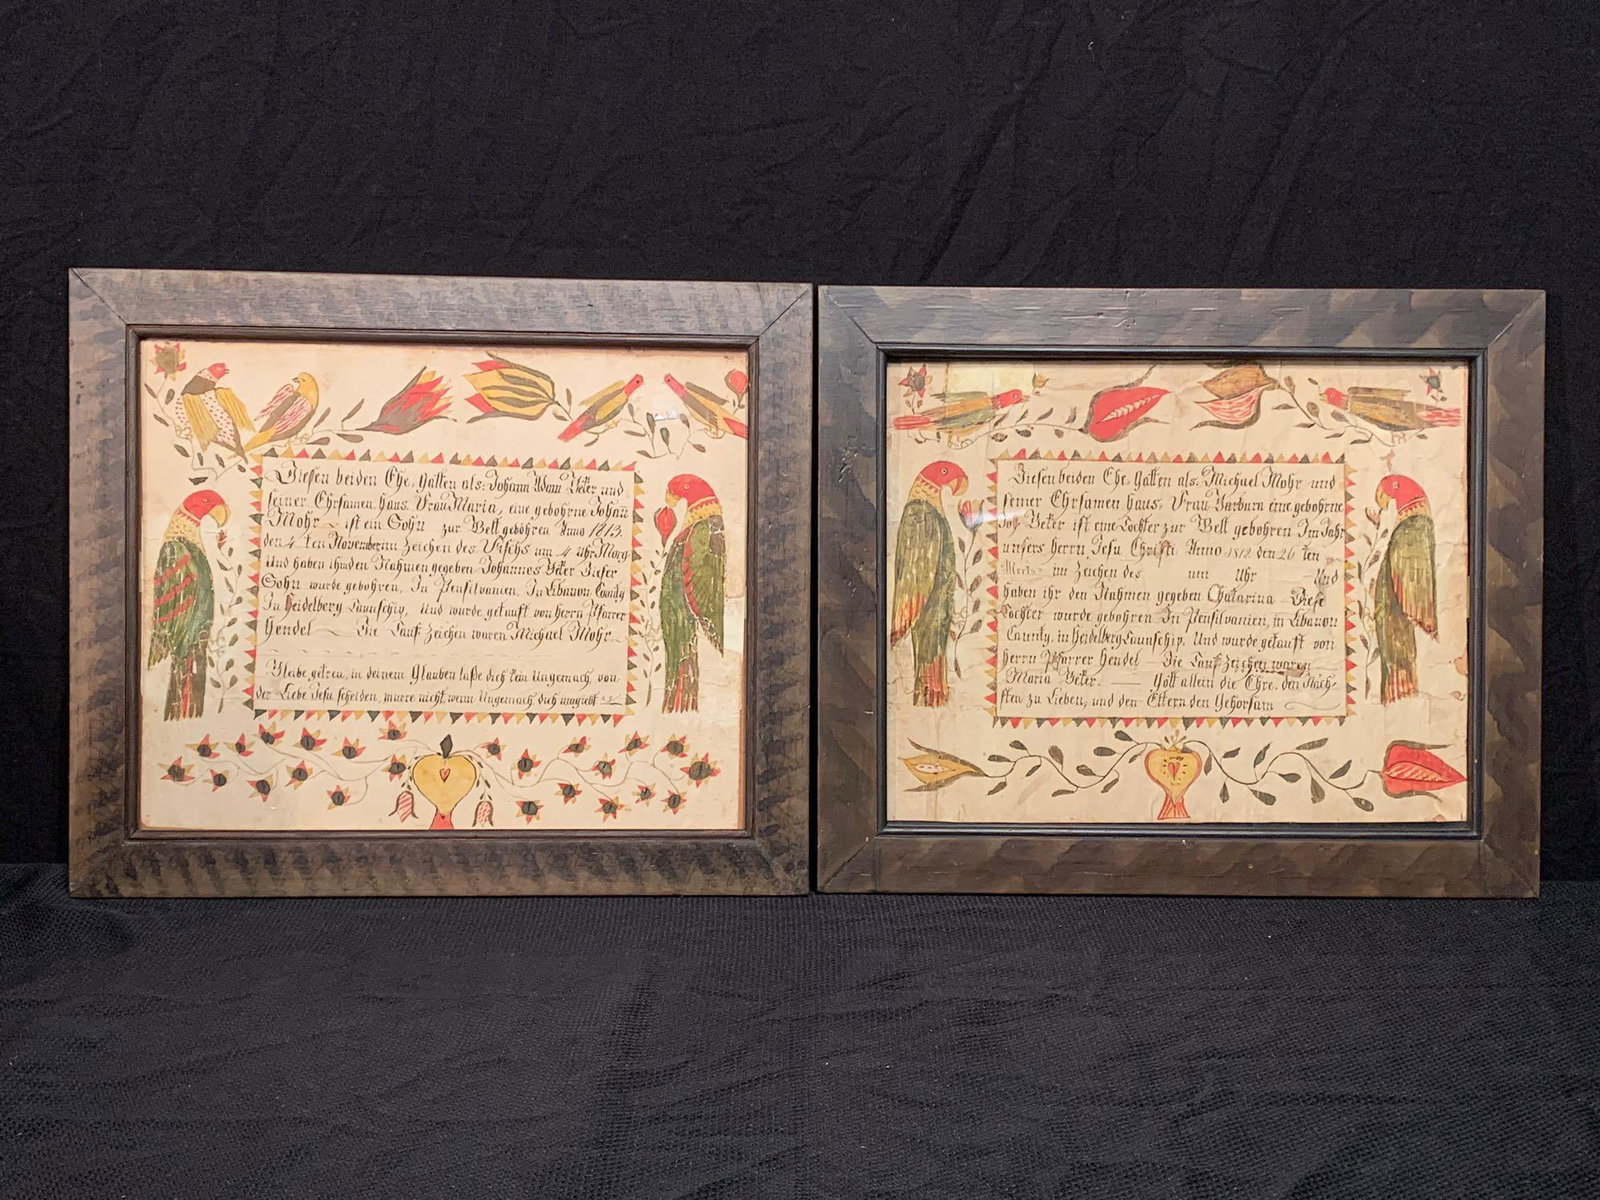 Diesen beiden Ehe Gatten als: Johann Adam Yeter und
seiner Ehrsamen haus Frau Maria, eine gebohrne Johan
Mohr ist ein Sohn zur Welt gebohren Anno 1813.
den 4 ten November im Zeichen des Fischs um 4 uhr Morg
Und haben ihm den Nahmen gegeben Johannes Yeter Dieser
Sohn wurde gebohren, In Pensilvanien, In Libanon County
In Heidelberg Taunschip, Und wurde getauft von Herrn Pfarrer
Hendel Die Tauf Zeichen waren Michael Mohr
Bleibe getreu, in deinem Glauben laße dich kein Ungemach, von
der Liebe Jesu scheiden, murre nicht, wenn Ungemach dich umgiebt
Diesen beiden Ehe Gatten als: Michael Mohr und
seiner Ehrsamen haus, Frau Barbara eine gebohrne
Yeter ist eine Tochter zur Welt gebohren Im Jahr
unsers herrn Jesu Christi Anno 1812 den 26 ten
im Zeichen des um Uhr Und
haben ihr den Nahmen gegeben Chatarina Diese
Tochter wurde gebohren In Pensilvanien, in Libanon
County, in Heidelberg Taunschip. Und wurde getauft von
Herrn Pfarrer Hendel Die Tauf Zeichen waren
Maria Yeter. Gott allein die Ehre, den Näch-
sten zu Lieben, und den Eltern den Gehorsam